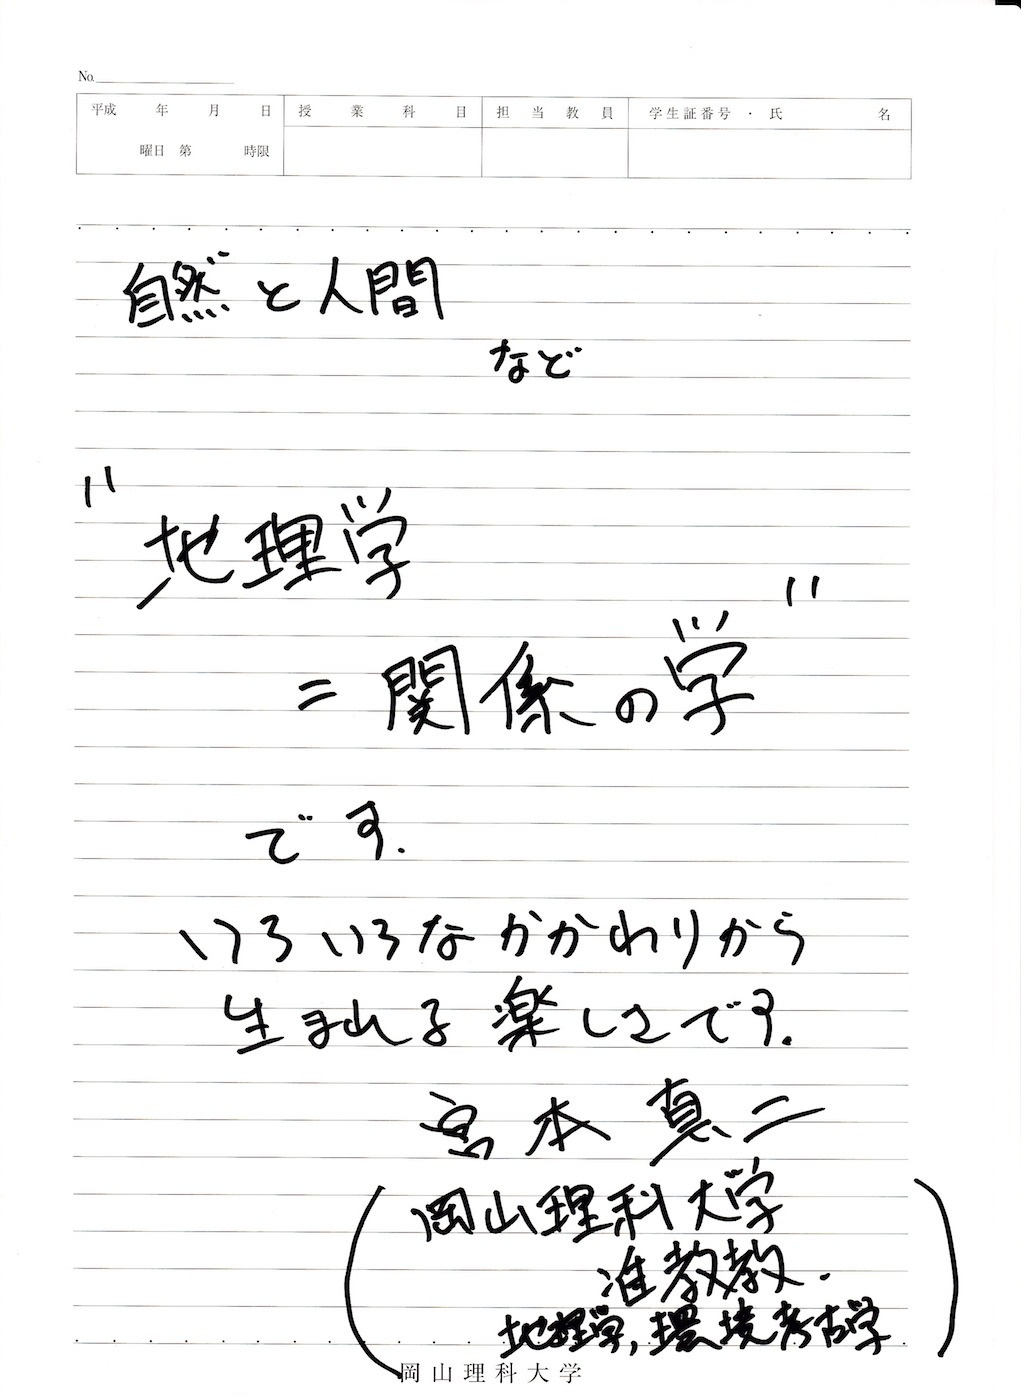 No.
平成 年 月 日 授業科目 担当教員 学生証番号・氏名
曜日 第 時限
自然と人間
など
"地理学
=関係の学"
です.
いろいろなかかわりから
生まれる楽しさです.
宮本真二
(岡山理科大学
准教教.
地理学,環境考古学)
岡山理科大学